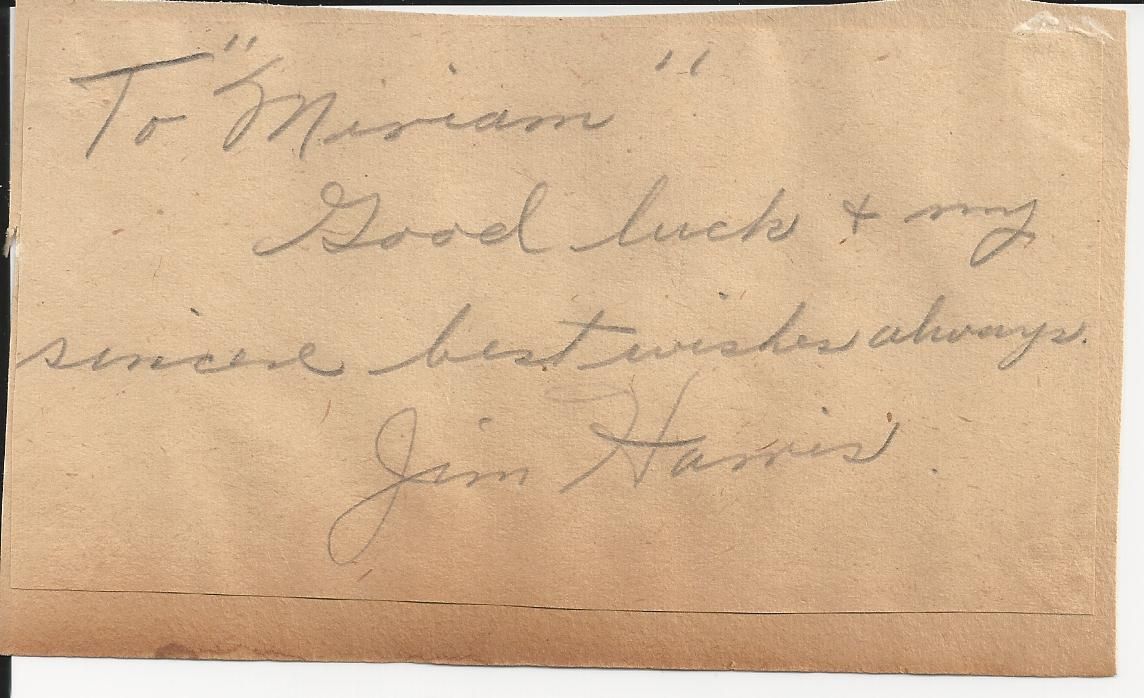 To "Miriam"
Good luck + my
sincere best wishes always.
Jim Harris.